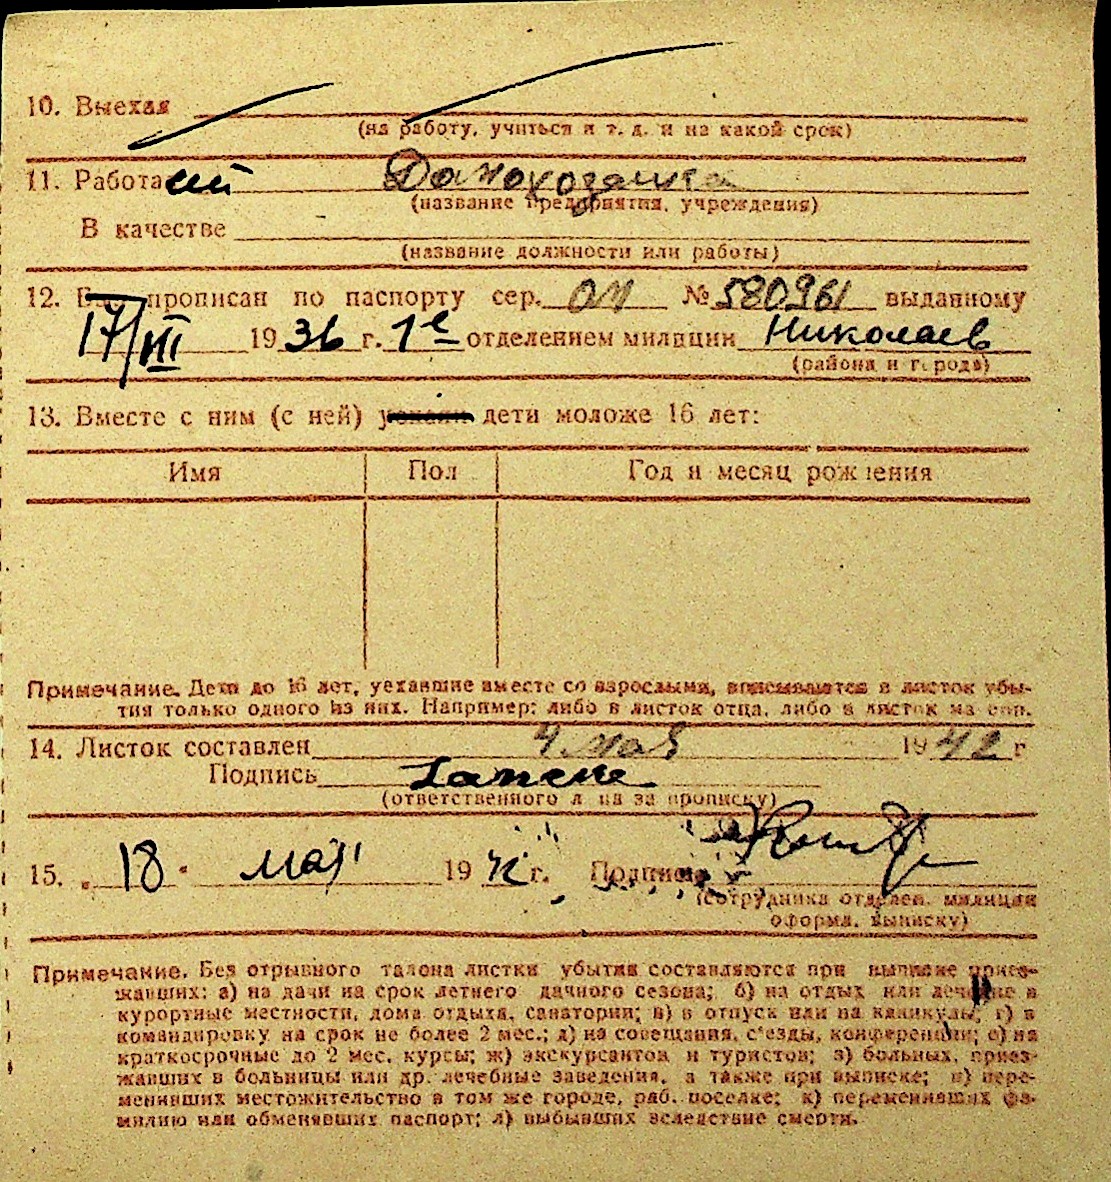 10. Выехал
(на работу, учиться и т. д. и на какой срок)
11. Работа Домохозяйка
(название предприятия, учреждения)
В качестве
(название должности или работы)
12. Был прописан по паспорту сер. № 580961 выданному
17/III 1936 г. 1е отделением милиции Николаев
(района и города)
13. Вместе с ним (с ней) дети моложе 16 лет:
Имя Пол Год и месяц рождения
Примечание. Дети до 16 лет, уехавшие вместе со взрослыми, вписываются в листок убы-
тия только одного из них. Например: либо в листок отца, либо в листок матери.
14. Листок составлен 4 мая 1942 г
Подпись
(ответственного лица за прописку)
15. 18 мая 1942 г. Подпись
(сотрудника отделен. милиции
оформл. выписку)
Примечание. Без отрывного талона листки убытия составляются при выписке приез-
жавших: а) на дачи на срок летнего дачного сезона; б) на отдых или лечение в
курортные местности, дома отдыха, санатории; в) в отпуск или на каникулы; г) в
командировку на срок не более 2 мес.; д) на совещания, с'езды, конференции; е) на
краткосрочные до 2 мес. курсы; ж) экскурсантов и туристов; з) больных, приез-
жавших в больницы или др. лечебные заведения, а также при выписке; и) пере-
менивших местожительство в том же городе, раб. поселке; к) переменивших фа-
милию или обменявших паспорт; л) выбывших вследствие смерти.